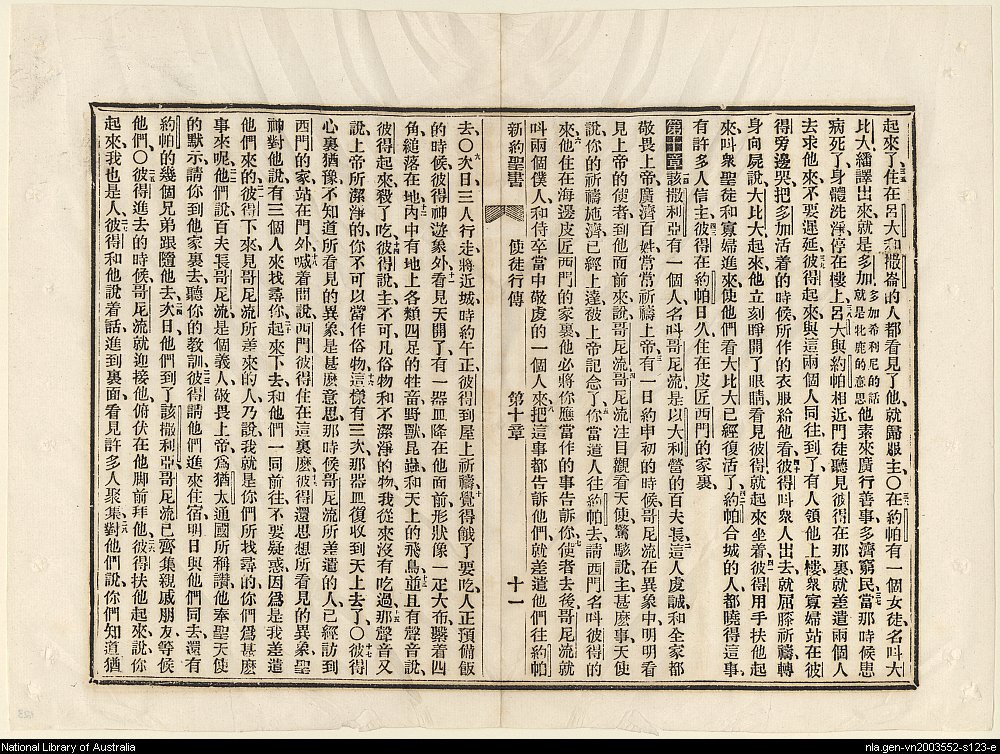 起來了住在呂大和撒崙的人都看見了他就歸服主〇在約帕有一個女徒名叫大
比大繙譯出來就是多加多加希利尼的話就是牝鹿的意思他素來廣行善事多濟窮民當那時候患
病死了身體洗淨停在樓上呂大與約帕相近門徒聽見彼得在那裏就差遣兩個人
去求他來不要遲延彼得起來與這兩個人同往到了有人領他上樓衆寡婦站在彼
得旁邊哭把多加活着的時候所作的衣服給他看彼得叫衆人出去就屈膝祈禱轉
身向屍說大比大起來他立刻睜開了眼睛看見彼得就起來坐着彼得用手扶他起
來叫衆聖徒和寡婦進來使他們看大比大已經復活了約帕合城的人都曉得這事
有許多人信主彼得在約帕日久住在皮匠西門的家裏
第十章該撒利亞有一個人名叫哥尼流是以大利營的百夫長這人虔誠和全家都
敬畏上帝廣濟百姓常常祈禱上帝有一日約申初的時候哥尼流在異象中明明看
見上帝的使者到他面前來說哥尼流哥尼流注目觀看天使驚駭說主甚麼事天使
說你的祈禱施濟已經上達被上帝記念了你當遣人往約帕去請西門名叫彼得的
來他住在海邊皮匠西門的家裏他必將你應當作的事告訴你使者去後哥尼流就
叫兩個僕人和侍卒當中敬虔的一個人來把這事都告訴他們就差遣他們往約帕
新約聖書 使徒行傳 第十章 十一
去〇次日三人行走將近城時約午正彼得到屋上祈禱覺得餓了要吃人正預備飯
的時候彼得神遊象外看見天開了有一器皿降在他面前形狀像一疋大布繫着四
角縋落在地內中有地上各類四足的牲畜野獸昆蟲和天上的飛鳥並且有聲音說
彼得起來殺了吃彼得說主不可凡俗物和不潔淨的物我從來沒有吃過那聲音又
說上帝所潔淨的你不可以當作俗物這樣有三次那器皿復收到天上去了〇彼得
心裏猶豫不知道所看見的異象是甚麼意思那時候哥尼流所差遣的人已經訪到
西門的家站在門外喊着問說西門彼得住在這裏麼彼得還思想所看見的異象聖
神對他說有三個人來找尋你起來下去和他們一同前往不要疑惑因爲是我差遣
他們來的彼得下來見哥尼流所差來的人乃說我就是你們所找尋的你們爲甚麼
事來呢他們說百夫長哥尼流是個義人敬畏上帝爲猶太通國所稱讚他奉聖天使
的默示請你到他家裏去聽你的教訓彼得請他們進來住宿明日與他們同去還有
約帕的幾個兄弟跟隨他去次日他們到了該撒利亞哥尼流已齊集親戚朋友等候
他們〇彼得進去的時候哥尼流就迎接他俯伏在他脚前拜他彼得扶他起來說你
起來我也是人彼得和他說着話進到裏面看見許多人聚集對他們說你們知道猶
National Library of Australia
nla.gen-vn2003552-s123-e